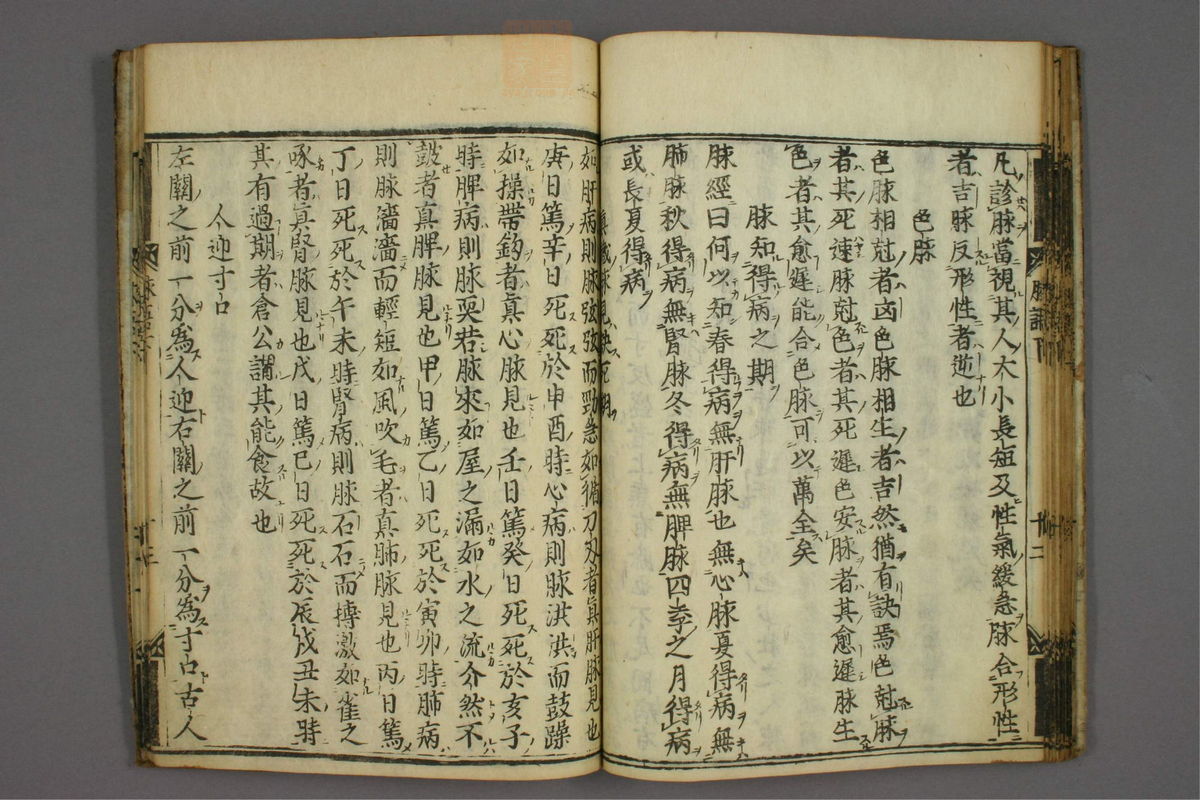 凡診脉當視其人大小長短及性氣緩急脉合形性
者吉脉反形性者逆也
色脉
色脉相尅者凶色脉相生者吉然猶有訣焉色尅脉
者其死速脉尅色者其死遲色安脉者其愈遲脉生
色者其愈遲能合色脉可以萬全矣
脉知得病之期
脉經曰何以知春得病無肝脉也無心脉夏得病無
肺脉秋得病無腎脉冬得病無脾脉四季之月得病
或長夏得病
真藏脉見決死期
如肝病則脉弦弦而勁急如循刀刃者眞肝脉見也
庚日篤辛日死死於申酉時心病則脉洪洪而鼓躁
如操帶鈎者真心脉見也壬日篤癸日死死於亥子
時脾病則脉耎若脉來如屋之漏如水之流介然不
皷者真脾脉見也甲日篤乙日死死於寅卯時肺病
則脉濇濇而輕短如風吹毛者真肺脉見也丙日篤
丁日死死於午未時腎病則脉石石而搏激如雀之
啄者眞腎脉見也戊日篤巳日死死於辰戌丑未時
其有過期者倉公謂其能食故也
人迎寸口
左關之前一分為人迎右關之前一分為寸口古人